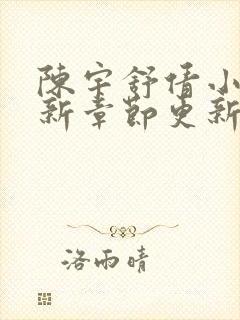 陳宇舒倩小
新章節更新
洛雨晴